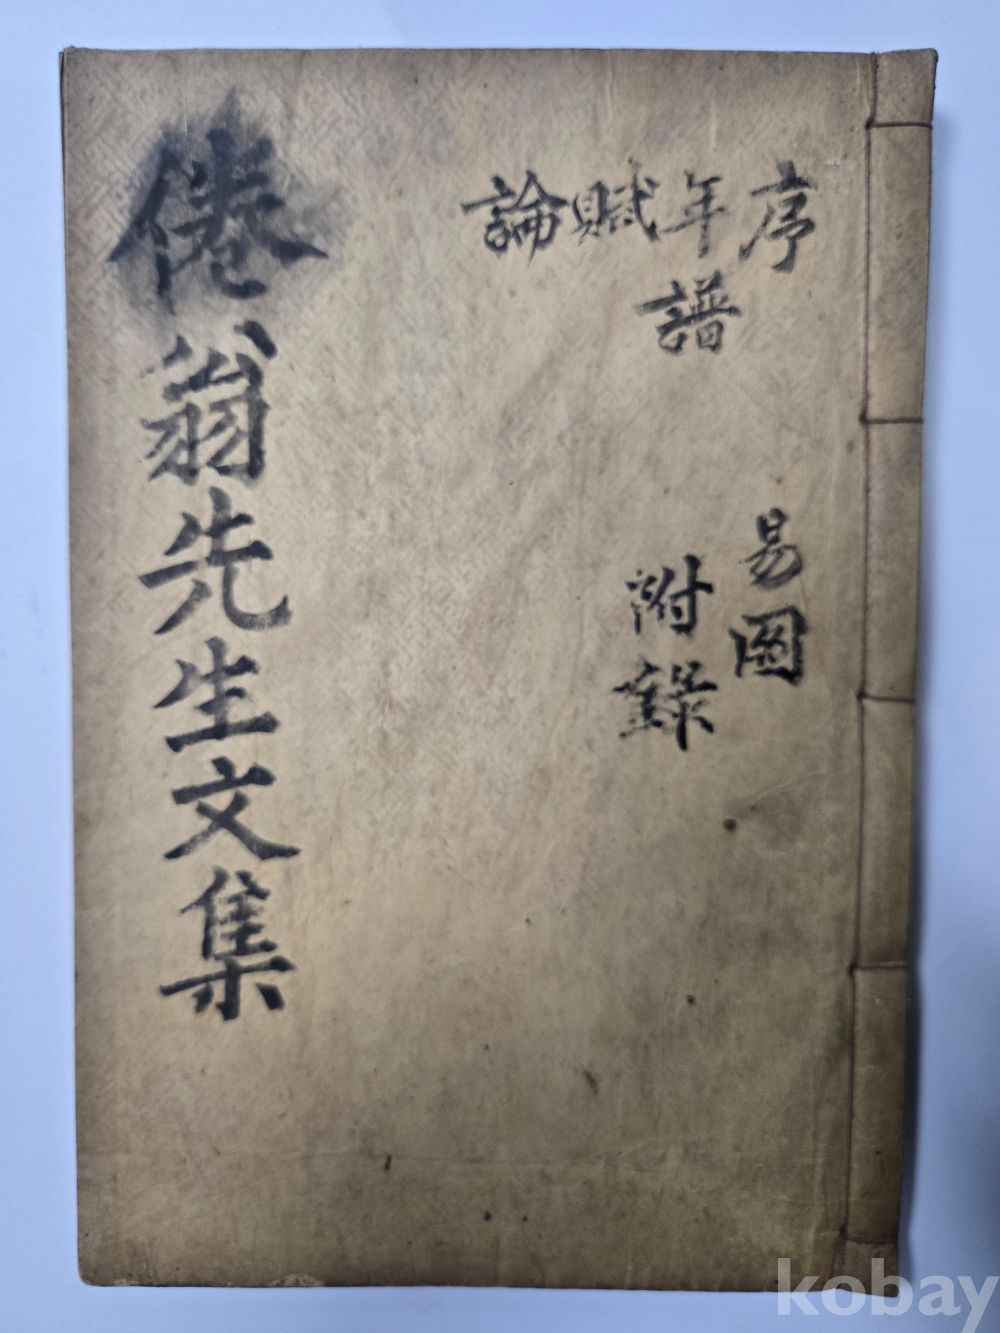 序
年譜
賦
論
易圖
附錄
倦翁先生文集
kobay